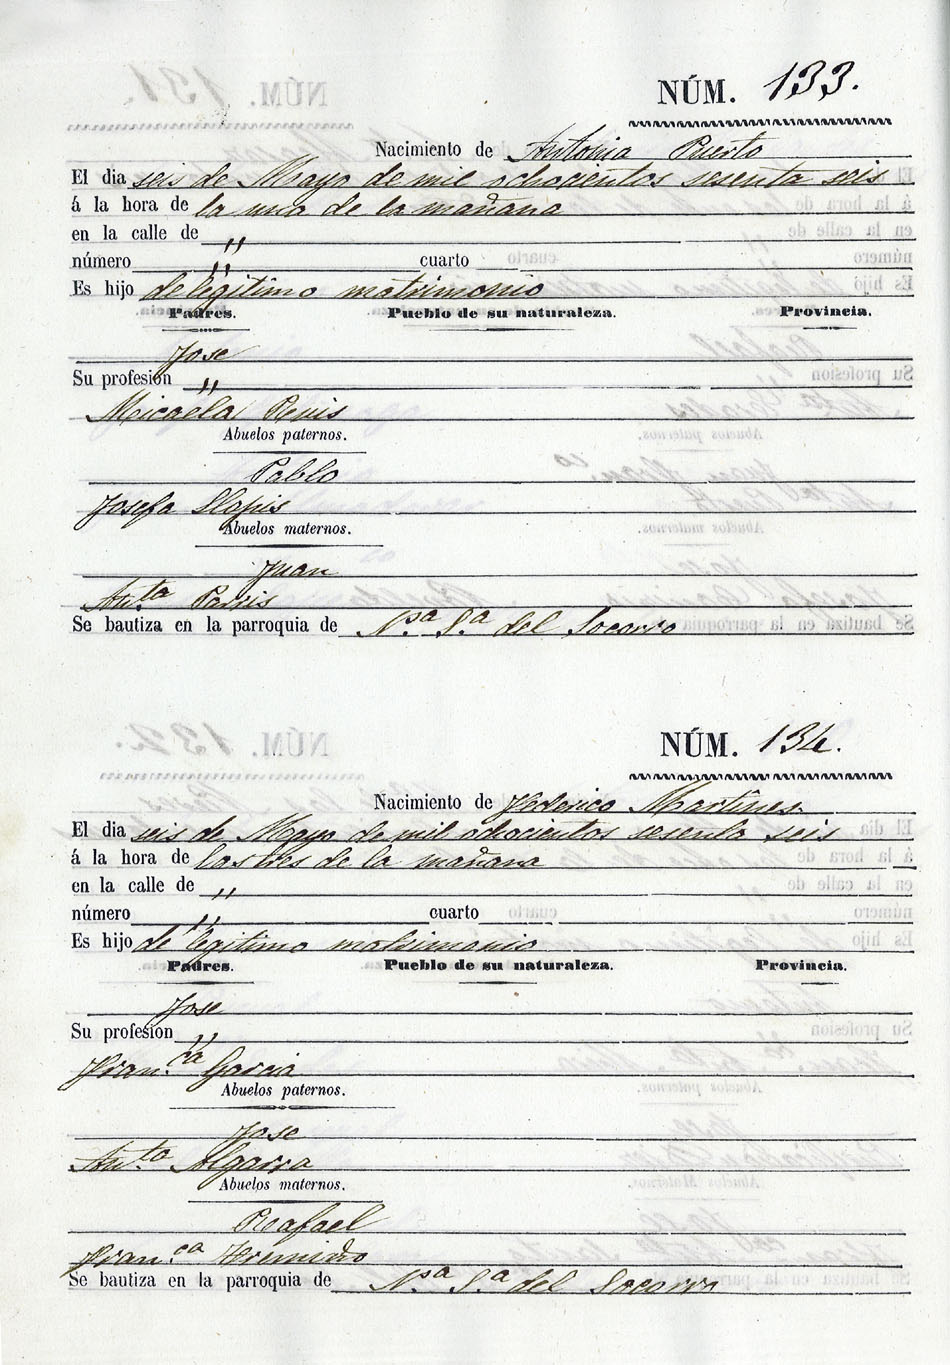 NÚM. 133.
Nacimiento de Antonia Puerto
El dia seis de Mayo de mil ochocientos sesenta seis
á la hora de la una de la mañana
en la calle de "
número " cuarto
Es hijo de legitimo matrimonio
Padres. Pueblo de su naturaleza. Provincia.
Jose
Su profesion "
Micaela
Abuelos paternos.
Pablo
Josefa Llopis
Abuelos maternos.
Juan
Anta
Se bautiza en la parroquia de Nsa Sa del Socorro
NÚM. 134.
Nacimiento de Federico Martines
El dia seis de Mayo de mil ochocientos sesenta seis
á la hora de las tres de la mañana
en la calle de "
número " cuarto
Es hijo de legitimo matrimonio
Padres. Pueblo de su naturaleza. Provincia.
Jose
Su profesion "
Fran.ca Garcia
Abuelos paternos.
Jose
Anta Algarra
Abuelos maternos.
Rafael
Fran.ca
Se bautiza en la parroquia de Nsa Sa del Socorro